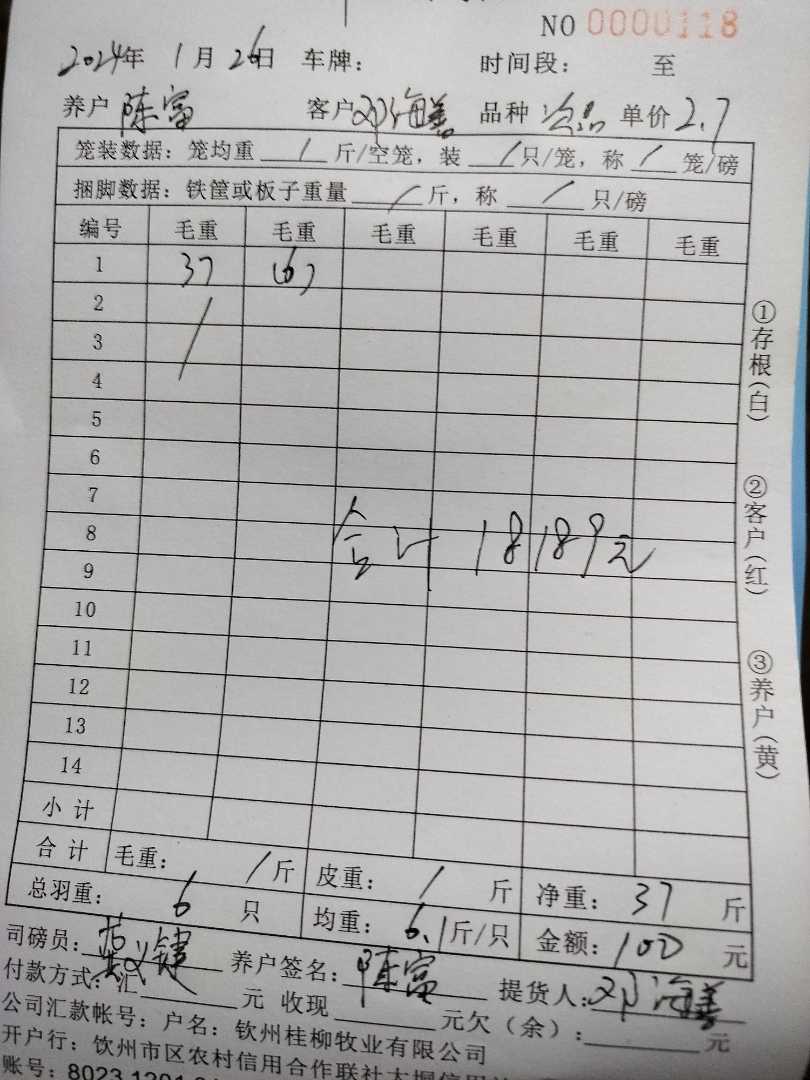 NO 0000118
2024年 1月 26日 车牌: 时间段: 至
养户 陈富 客户 邓海善 品种 单价 2.7
笼装数据: 笼均重 / 斤/空笼, 装 / 只/笼, 称 / 笼/磅
捆脚数据: 铁筐或板子重量 / 斤, 称 / 只/磅
编号 毛重 毛重 毛重 毛重 毛重 毛重
1 37 (6)
2
3 /
4
5
6
7
8
合计 18189元
9
10
11
12
13
14
小计
合计 毛重: / 斤 皮重: / 斤 净重: 37 斤
总羽重: 6 只 均重: 6.1 斤/只 金额: 100 元
司磅员: 养户签名: 陈富 提货人: 邓海善
付款方式: 汇 元 收现 元欠(余): 元
公司汇款帐号: 户名: 钦州桂柳牧业有限公司
开户行: 钦州市区农村信用合作联社大垌信用
账号: 8023 1201
①存根(白)
②客户(红)
③养户(黄)